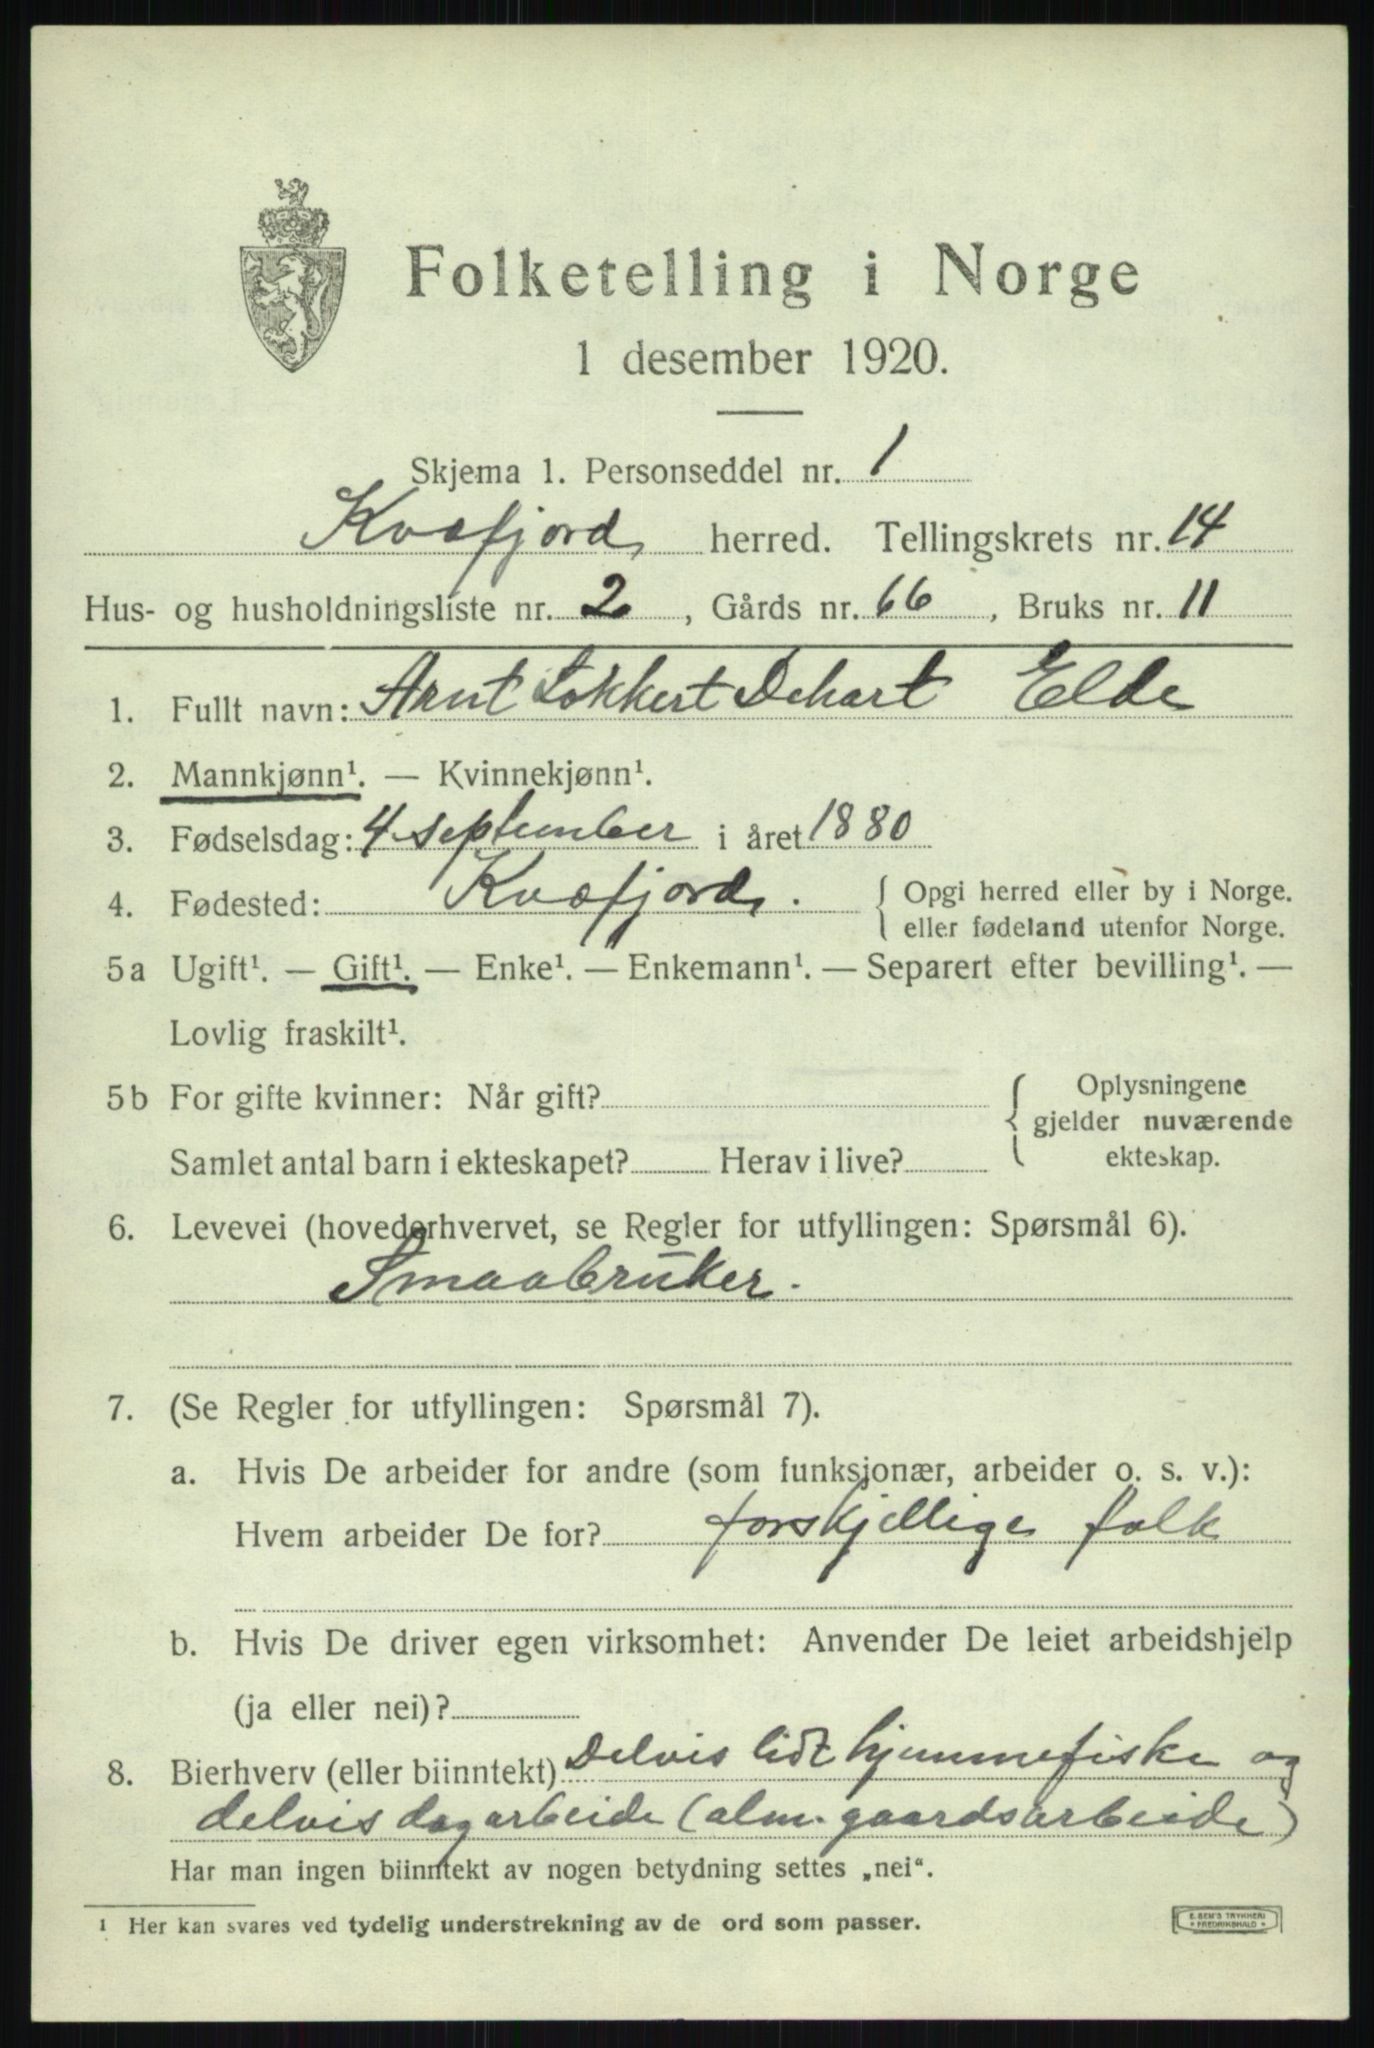 Folketelling i Norge
1 desember 1920.
Skjema 1. Personseddel nr. 1
Kvæfjord herred. Tellingskrets nr. 14
Hus- og husholdningsliste nr. 2, Gårds nr. 66, Bruks nr. 11
1. Fullt navn: Arnt Lokkert Dehart Elde
2. Mannkjønn¹. — Kvinnekjønn¹.
3. Fødselsdag: 4 september i året 1880
4. Fødested: Kvæfjord. { Opgi herred eller by i Norge.
eller fødeland utenfor Norge.
5a Ugift¹. — Gift¹. — Enke¹. — Enkemann¹. — Separert efter bevilling¹. —
Lovlig fraskilt¹.
5b For gifte kvinner: Når gift? { Oplysningene
gjelder nuværende
Samlet antal barn i ekteskapet? Herav i live? ekteskap.
6. Levevei (hovederhvervet, se Regler for utfyllingen: Spørsmål 6).
Smaabruker.
7. (Se Regler for utfyllingen: Spørsmål 7).
a. Hvis De arbeider for andre (som funksjonær, arbeider o. s. v.):
Hvem arbeider De for? forskjellige folk
b. Hvis De driver egen virksomhet: Anvender De leiet arbeidshjelp
(ja eller nei)?
8. Bierhverv (eller biinntekt) Delvis lidt hjemmefiske og
delvis dagarbeide (alm. gaardsarbeide)
Har man ingen biinntekt av nogen betydning settes „nei“.
¹ Her kan svares ved tydelig understrekning av de ord som passer.
E. SEM'S TRYKKERI
* FREDRIKSHALD *